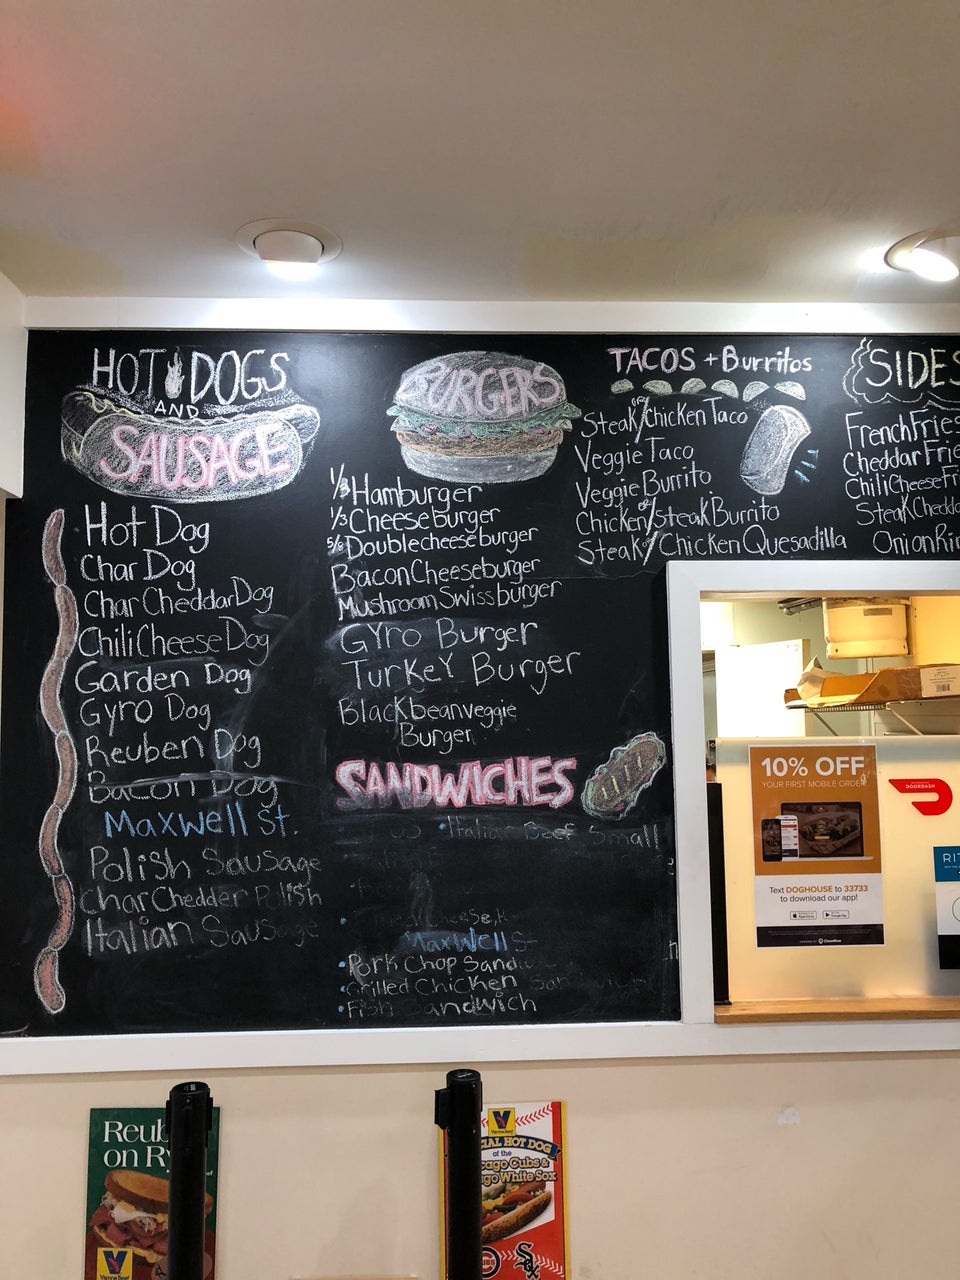 HOT DOGS
AND
SAUSAGE
Hot Dog
Char Dog
Char Cheddar Dog
Chili Cheese Dog
Garden Dog
Gyro Dog
Reuben Dog
Bacon Dog
Maxwell St.
Polish Sausage
Char Chedder Polish
Italian Sausage
BURGERS
1/3 Hamburger
1/3 Cheeseburger
5/8 Doublecheeseburger
Bacon Cheeseburger
Mushroom Swissburger
Gyro Burger
Turkey Burger
Blackbeanveggie
Burger
SANDWICHES
• Italian Beef Small
Maxwell St
• Pork Chop
• Grilled Chicken
• Fish Sandwich
TACOS + Burritos
Steak/or Chicken Taco
Veggie Taco
Veggie Burrito
Chicken/or Steak Burrito
Steak or Chicken Quesadilla
SIDES
French Fries
Cheddar Frie
Chili Cheese Fri
Steak Chedda
Onion Rin
10% OFF
YOUR FIRST MOBILE ORDER
Text DOGHOUSE to 33733
to download our app!
DOORDASH
RIT
Reub
on Ry
V
Vienna Beef
V
Vienna Beef
CIAL HOT DOG
of the
cago Cubs &
ago White Sox
Sox